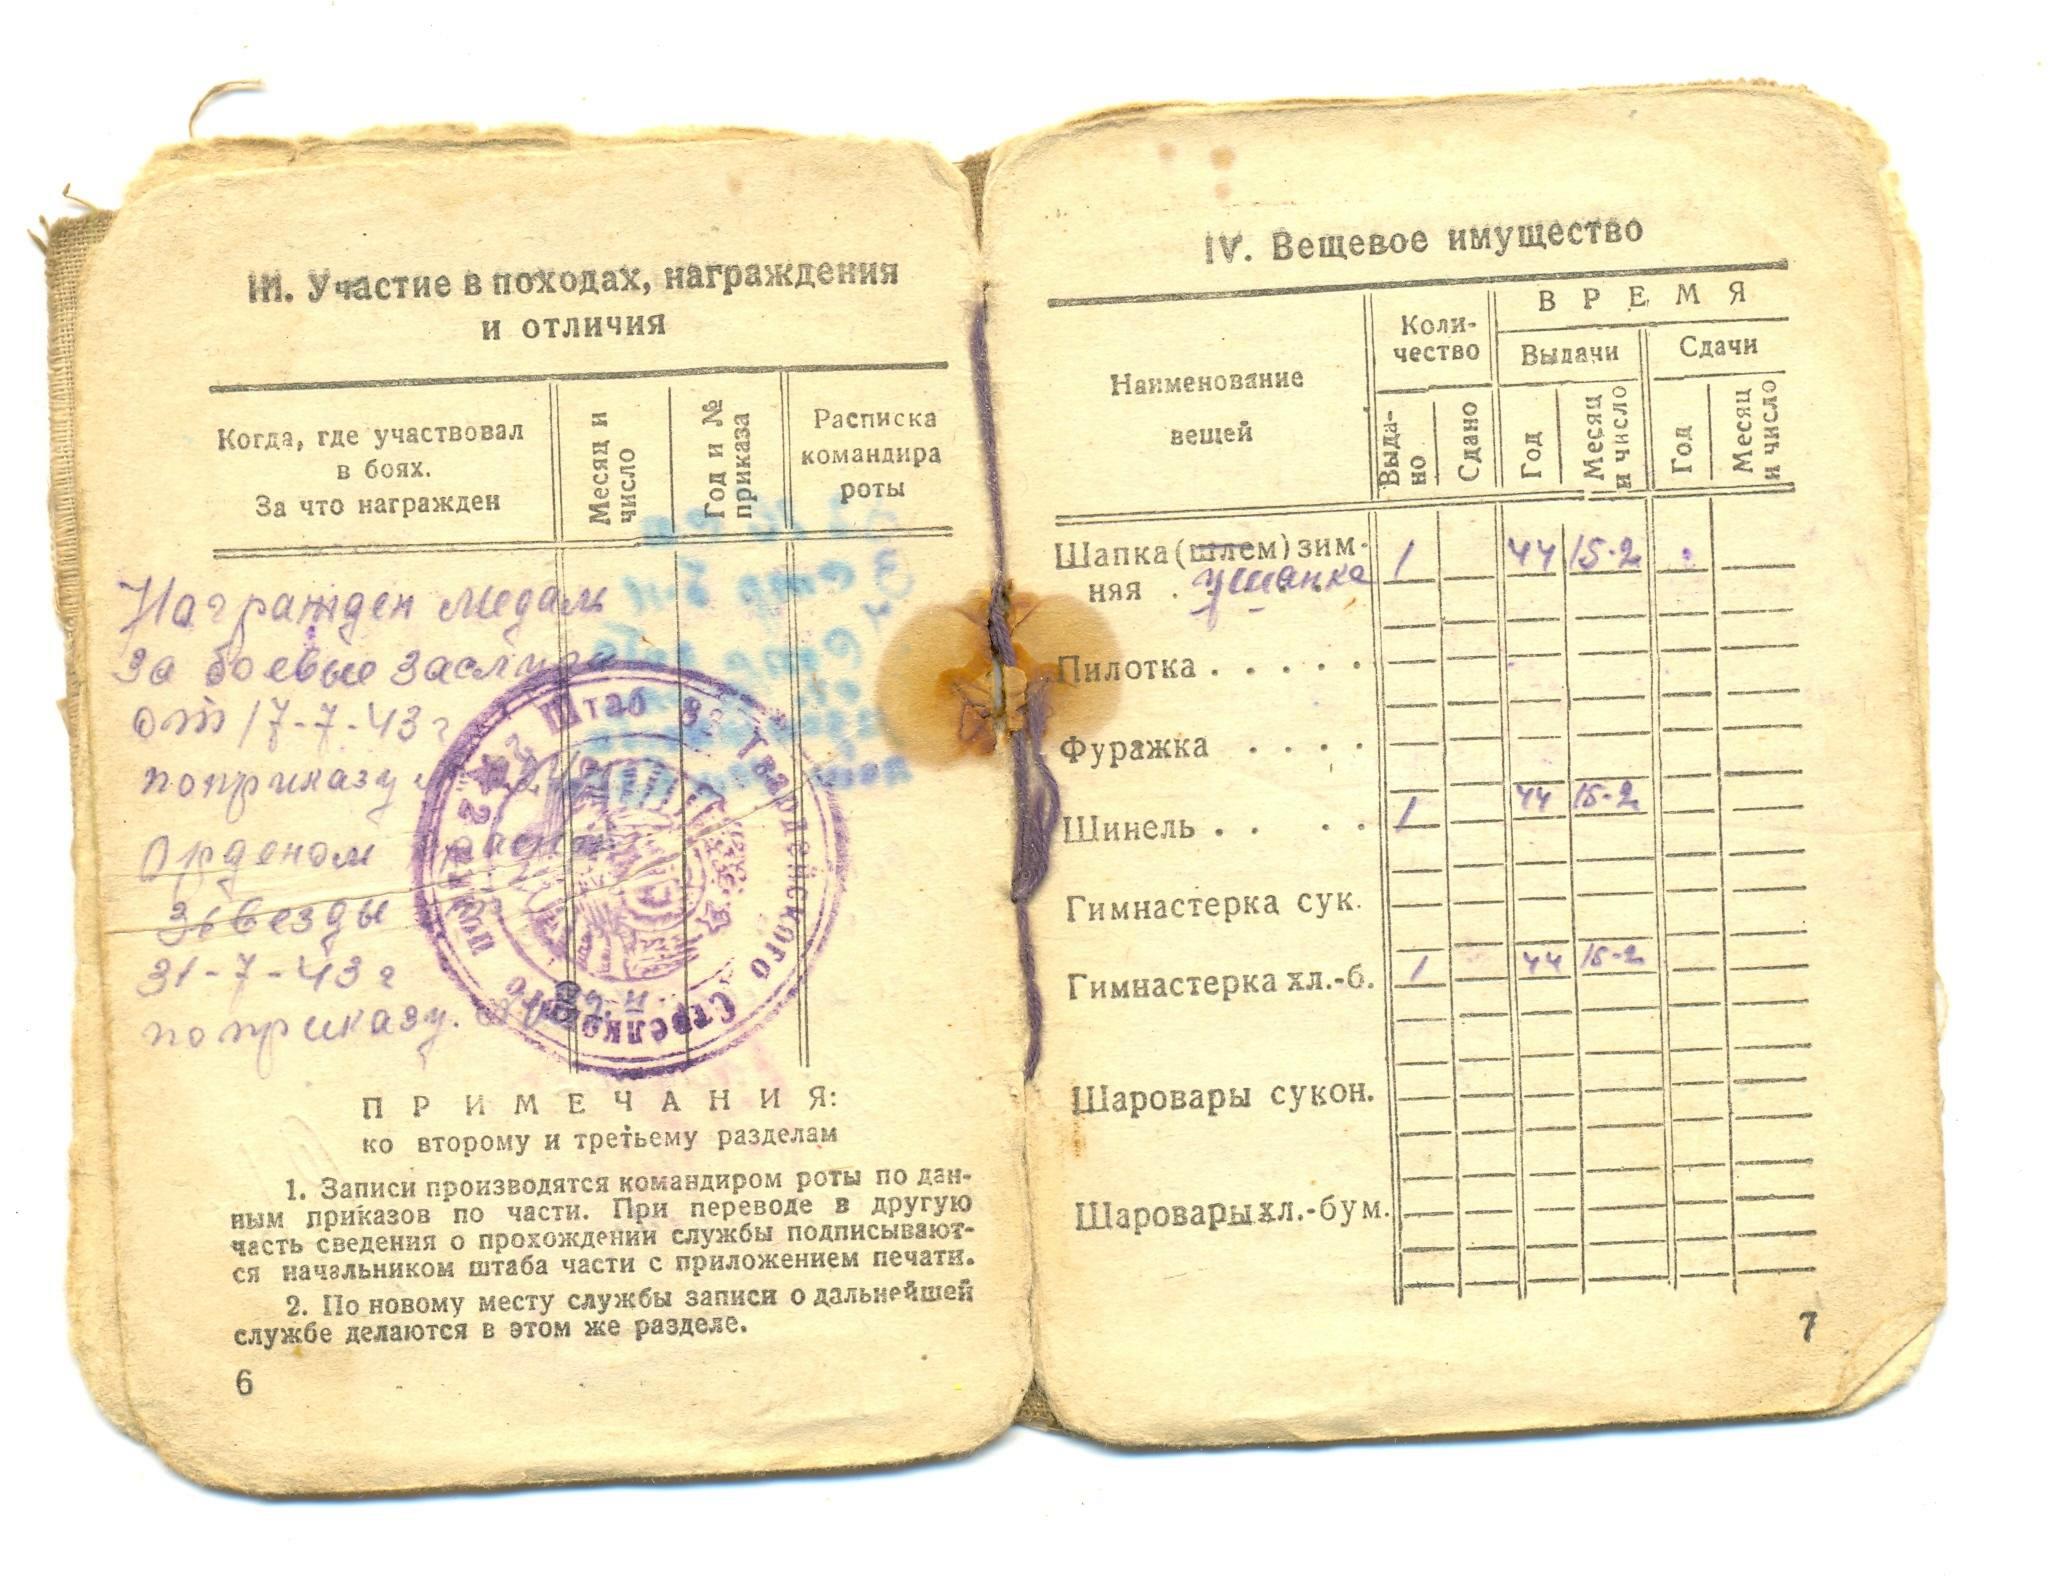 III. Участие в походах, награждения
и отличия
Когда, где участвовал
в боях.
За что награжден
Месяц и
число
Год и №
приказа
Расписка
командира
роты
Награжден медаль
За боевые заслуги
от 17-7-43 г
по приказу
Орденом
Звезды
31-7-43 г
по приказу.
Штаб Гвардейского Стрелкового полка
П Р И М Е Ч А Н И Я:
ко второму и третьему разделам
1. Записи производятся командиром роты по дан-
ным приказов по части. При переводе в другую
часть сведения о прохождении службы подписывают-
ся начальником штаба части с приложением печати.
2. По новому месту службы записи о дальнейшей
службе делаются в этом же разделе.
6
IV. Вещевое имущество
Наименование
вещей
Коли-
чество
В Р Е М Я
Выдачи
Сдачи
Выда-
но
Сдано
Год
Месяц
и число
Год
Месяц
и число
Шапка (шлем) зим- 1 44 15-2
няя . ушанка
Пилотка . . . . .
Фуражка . . . .
Шинель . . . . 1 44 15-2
Гимнастерка сук.
Гимнастерка хл.-б. 1 44 15-2
Шаровары сукон.
Шаровары хл.-бум.
7